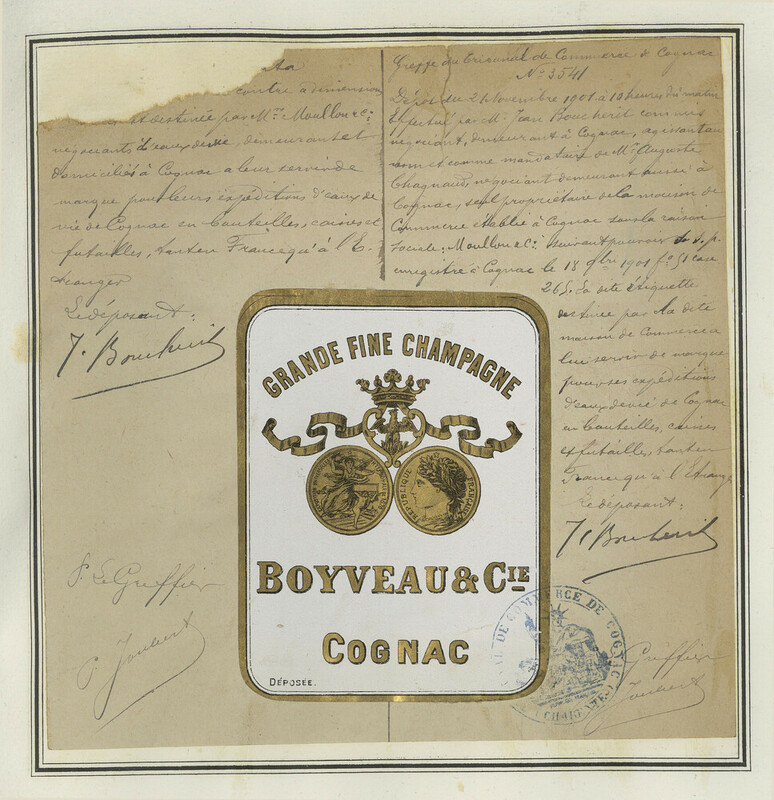 contre à dimension
est destinée par Mrs Moullon & Cie
négociants d'eaux de vie, demeurant et
domiciliés à Cognac a leur servir de
marque pour leurs expéditions d'eaux de
vie de Cognac en bouteilles, caisses et
futailles, tant en France qu'à l'E-
tranger
Le déposant:
J. Boucherit
P. Le Greffier
P. Joubert
Greffe du tribunal de Commerce de Cognac
No 3541
Dépôt du 21 Novembre 1901 à 10 heures du matin
Effectué par M. Jean Boucherit commis
négociant, demeurant à Cognac, agissant au
nom et comme mandataire de Mr Auguste
Chagnaud, négociant demeurant aussi à
Cognac, seul propriétaire de la maison de
Commerce établie à Cognac sous la raison
sociale: Moullon & Cie suivant pouvoir s. s. p.
enregistré à Cognac le 18 9bre 1901 fo 51 case
265. La dite étiquette
destinée par la dite
maison de Commerce à
lui servir de marque
pour ses expéditions
d'eaux de vie de Cognac
en bouteilles, caisses
et futailles, tant en
France qu'à l'étranger
Le déposant:
J. Boucherit
Greffier
Joubert
GRANDE FINE CHAMPAGNE
REPUBLIQUE FRANÇAISE
BOYVEAU & CIE
COGNAC
DÉPOSÉE.
DE COMMERCE DE COGNAC
(CHARENTE)